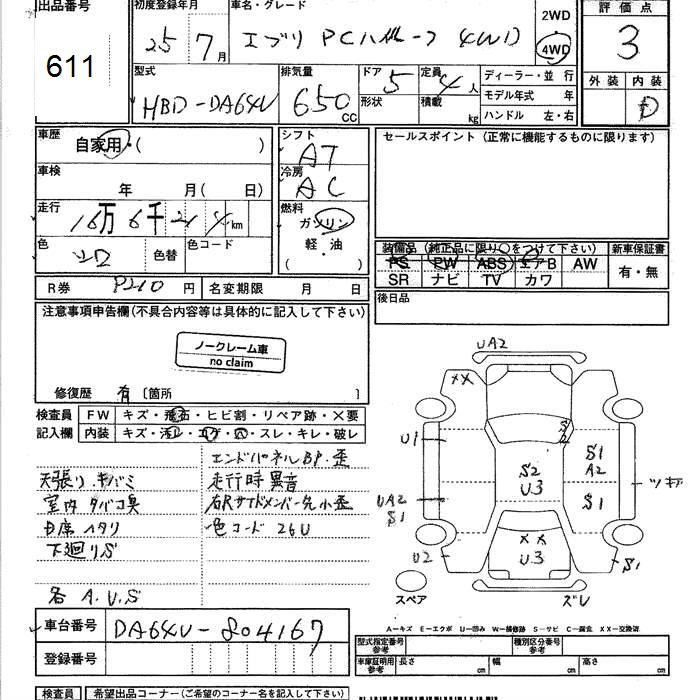 出品番号
611
初度登録年月
25 7 月
車名・グレード
エブリ PCハイルーフ 4WD
2WD
4WD
評価点
3
外装 内装
D
型式
HBD-DA64V
排気量
650 CC
ドア 5
形状
定員 4 人
積載 kg
ディーラー・並 行
モデル年式 年
ハンドル 左・右
車歴
自家用・( )
シフト
AT
セールスポイント (正常に機能するものに限ります)
車検
年 月( 日)
冷房
AC
走行
16万 6千 21 km
燃料
ガソリン
軽・油
( )
色
シロ
色替
色コード
装備品 (純正品に限り○をつけて下さい)
新車保証書
PS PW ABS エアB AW
SR ナビ TV カワ
有・無
R券 P210 円
名変期限 月 日
後日品
注意事項申告欄(不具合内容等は具体的に記入して下さい)
ノークレーム車
no claim
修復歴 有 〔箇所 〕
検査員
記入欄
FW キズ・飛石・ヒビ割・リペア跡・X要
内装 キズ・汚レ・コゲ・穴・スレ・キレ・破レ
エンドパネルBP.歪
天張り.キバミ
走行時異音
室内タバコ臭
右Rサイドメンバー先小歪
D席ヘタリ
色コード 26U
下廻りS
各 A.U.S
UA2
XX
U1
S2
S2
U3
S1
A2
S1
ツギ
UA2
S1
U2
XX
U3
S1
スペア
ズレ
A-キズ E-エクボ U-凹み W-補修跡 S-サビ C-腐食 XX-交換済
車台番号 DA64V-804167
登録番号
型式指定番号
参考
種別区分番号
参考
車庫証明用
参考
長さ cm
幅 cm
高さ cm
検査員 希望出品コーナー(ご希望のコーナー名を記入して下さい)